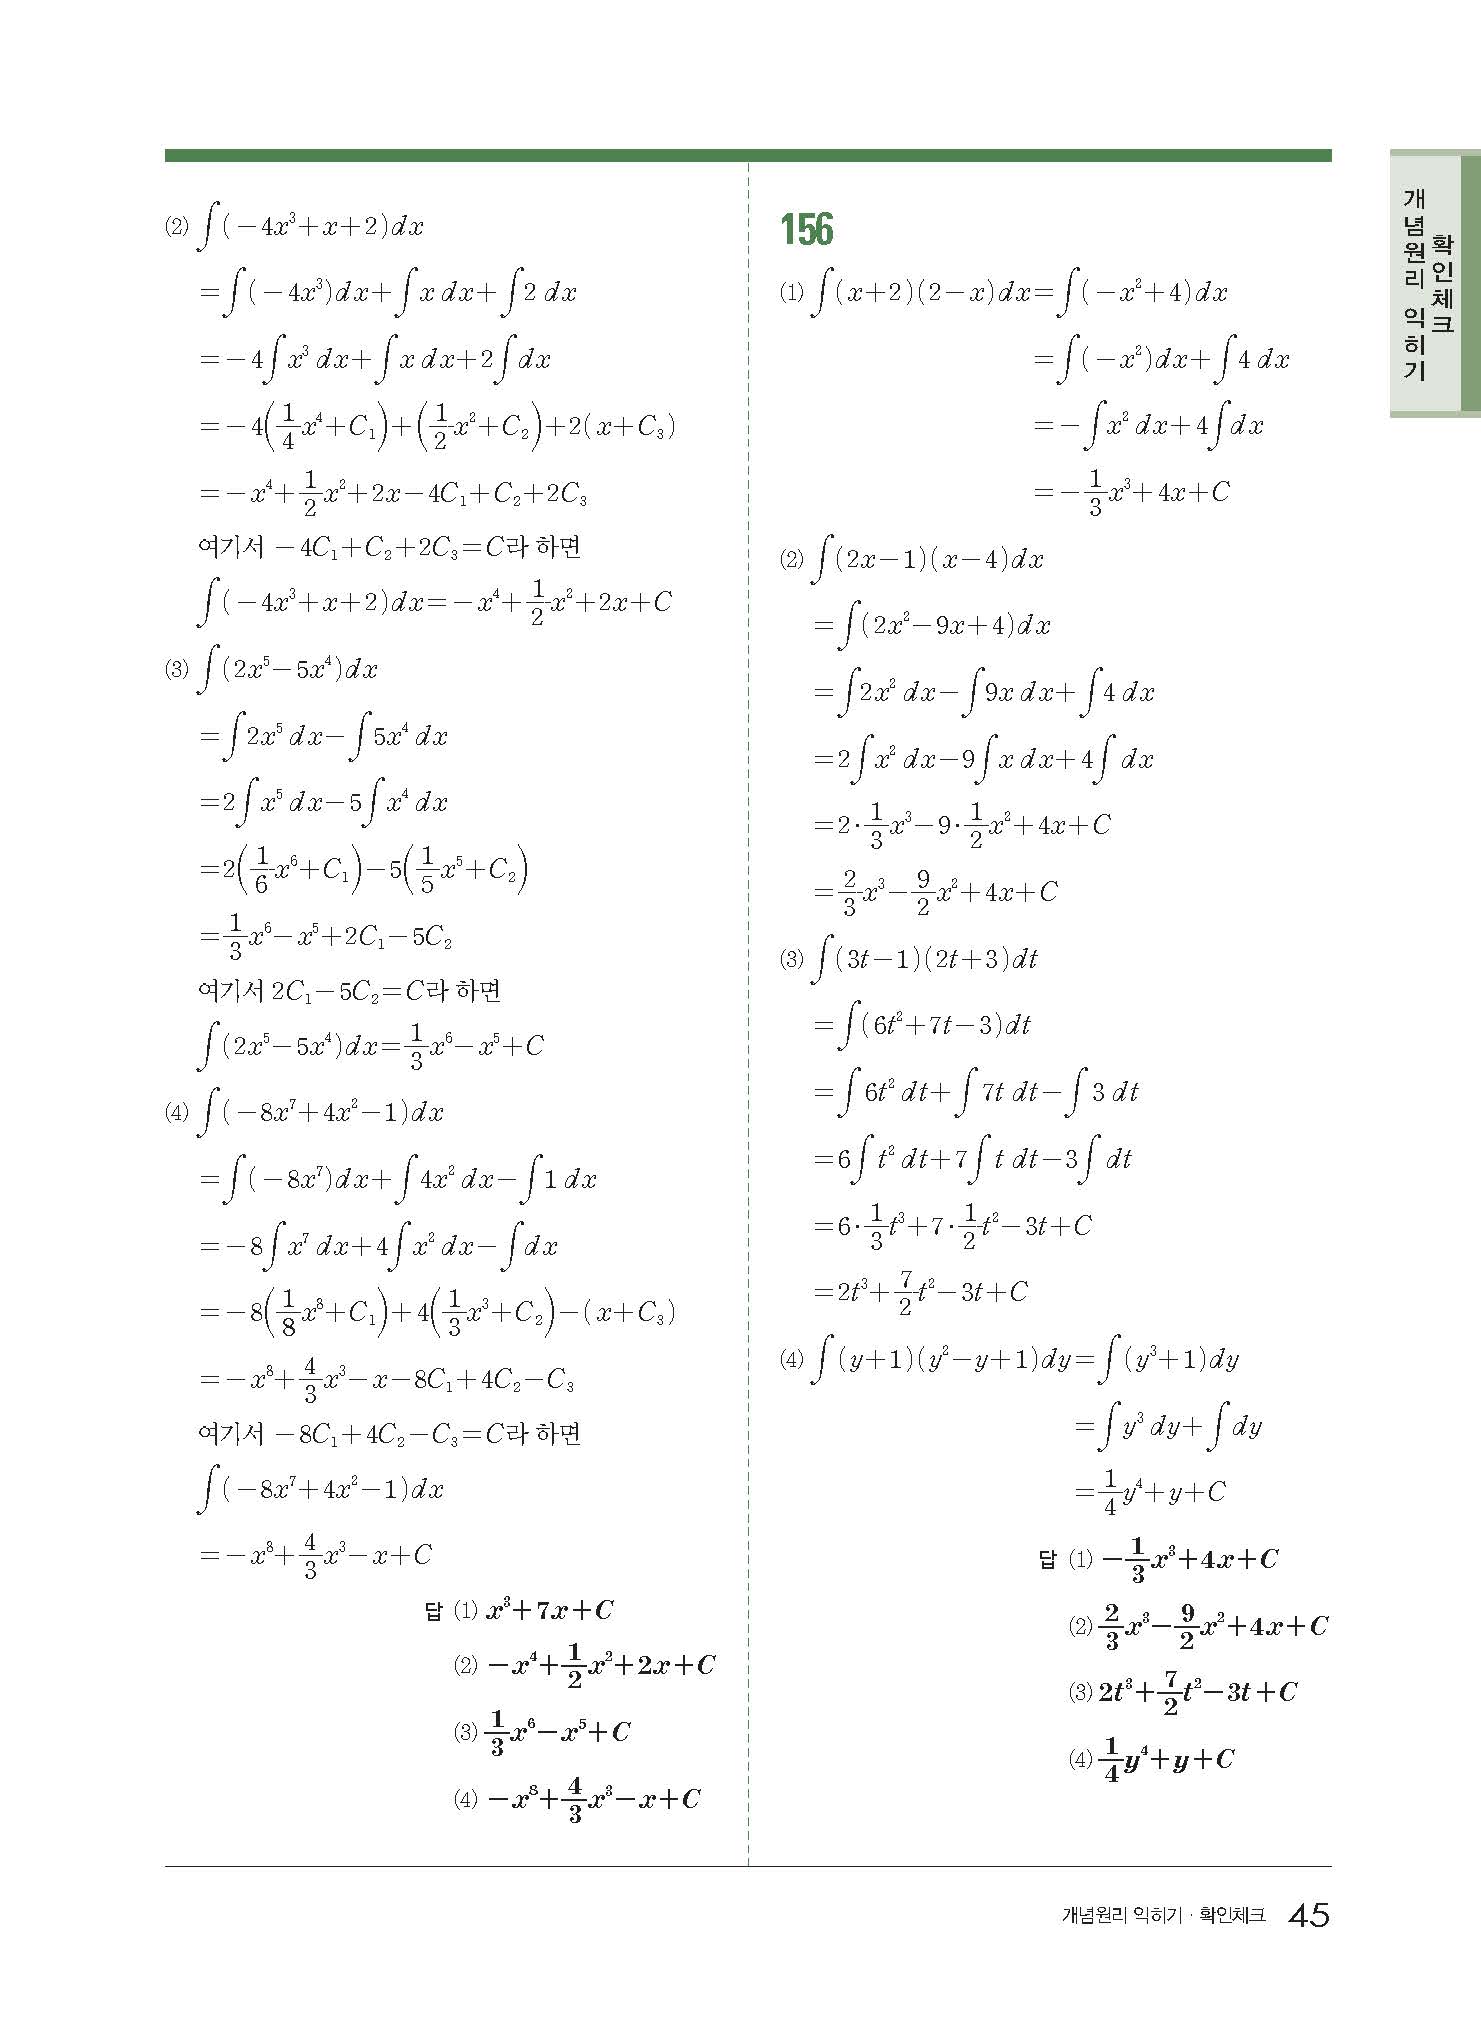 (2) ∫(−4x³+x+2)dx
=∫(−4x³)dx+∫x dx+∫2 dx
=−4∫x³ dx+∫x dx+2∫dx
=−4(1/4 x⁴+C₁)+(1/2 x²+C₂)+2(x+C₃)
=−x⁴+1/2 x²+2x−4C₁+C₂+2C₃
여기서 −4C₁+C₂+2C₃=C라 하면
∫(−4x³+x+2)dx=−x⁴+1/2 x²+2x+C
(3) ∫(2x⁵−5x⁴)dx
=∫2x⁵ dx−∫5x⁴ dx
=2∫x⁵ dx−5∫x⁴ dx
=2(1/6 x⁶+C₁)−5(1/5 x⁵+C₂)
=1/3 x⁶−x⁵+2C₁−5C₂
여기서 2C₁−5C₂=C라 하면
∫(2x⁵−5x⁴)dx=1/3 x⁶−x⁵+C
(4) ∫(−8x⁷+4x²−1)dx
=∫(−8x⁷)dx+∫4x² dx−∫1 dx
=−8∫x⁷ dx+4∫x² dx−∫dx
=−8(1/8 x⁸+C₁)+4(1/3 x³+C₂)−(x+C₃)
=−x⁸+4/3 x³−x−8C₁+4C₂−C₃
여기서 −8C₁+4C₂−C₃=C라 하면
∫(−8x⁷+4x²−1)dx
=−x⁸+4/3 x³−x+C
답 (1) x³+7x+C
(2) −x⁴+1/2 x²+2x+C
(3) 1/3 x⁶−x⁵+C
(4) −x⁸+4/3 x³−x+C
156
(1) ∫(x+2)(2−x)dx=∫(−x²+4)dx
=∫(−x²)dx+∫4 dx
=−∫x² dx+4∫dx
=−1/3 x³+4x+C
(2) ∫(2x−1)(x−4)dx
=∫(2x²−9x+4)dx
=∫2x² dx−∫9x dx+∫4 dx
=2∫x² dx−9∫x dx+4∫dx
=2·1/3 x³−9·1/2 x²+4x+C
=2/3 x³−9/2 x²+4x+C
(3) ∫(3t−1)(2t+3)dt
=∫(6t²+7t−3)dt
=∫6t² dt+∫7t dt−∫3 dt
=6∫t² dt+7∫t dt−3∫dt
=6·1/3 t³+7·1/2 t²−3t+C
=2t³+7/2 t²−3t+C
(4) ∫(y+1)(y²−y+1)dy=∫(y³+1)dy
=∫y³ dy+∫dy
=1/4 y⁴+y+C
답 (1) −1/3 x³+4x+C
(2) 2/3 x³−9/2 x²+4x+C
(3) 2t³+7/2 t²−3t+C
(4) 1/4 y⁴+y+C
개념원리 익히기
확인체크
개념원리 익히기 · 확인체크 45